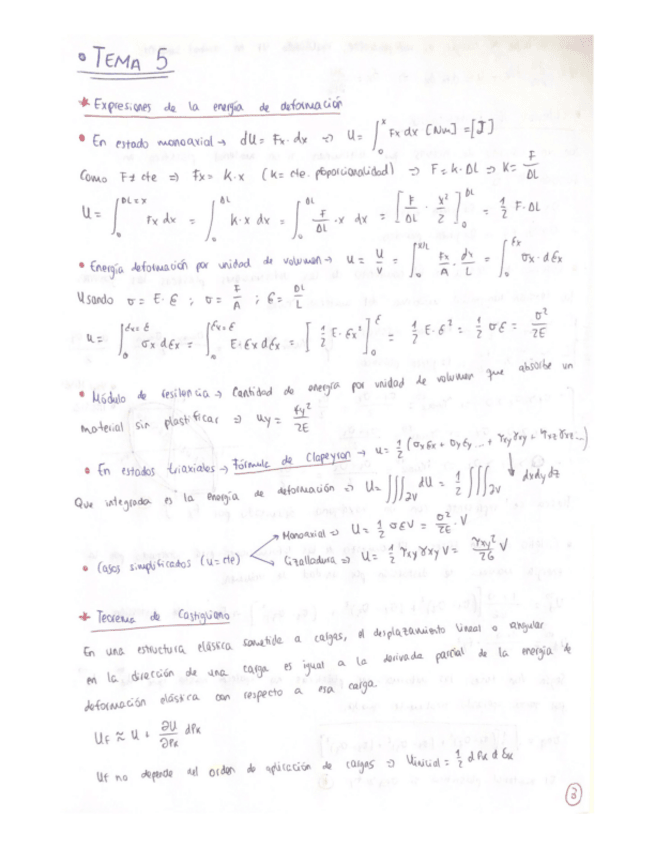 • TEMA 5
* Expresiones de la energía de deformación
• En estado monoaxial → dU = Fx·dx ⇒ U = ∫₀ˣ Fx dx [Nm] = [J]
Como F ≠ cte ⇒ Fx = K·x (K = cte. proporcionalidad) ⇒ F = K·ΔL ⇒ K = F/ΔL
U = ∫₀^(ΔL=x) Fx dx = ∫₀^ΔL K·x dx = ∫₀^ΔL F/ΔL · x dx = [F/ΔL · x²/2]₀^ΔL = 1/2 F·ΔL
• Energía deformación por unidad de volumen → u = U/V = ∫₀^(x/L) Fx/A · dx/L = ∫₀^εx σx·dεx
Usando σ = E·ε ; σ = F/A ; ε = ΔL/L
u = ∫₀^(εx=ε) σx dεx = ∫₀^(εx=ε) E·εx dεx = [1/2 E·εx²]₀^ε = 1/2 E·ε² = 1/2 σε = σ²/2E
• Módulo de resilencia → Cantidad de energía por unidad de volumen que absorbe un
material sin plastificar ⇒ uy = σy²/2E
• En estados triaxiales → Fórmula de Clapeyron → u = 1/2 (σxεx + σyεy ... + τxyγxy + τxzγxz...)
Que integrada es la energía de deformación ⇒ U = ∭∂V dU = 1/2 ∭∂V ↓ dxdydz
• Casos simplificados (u = cte)
Monoaxial ⇒ U = 1/2 σεV = σ²/2E · V
Cizalladura ⇒ U = 1/2 τxy γxy V = τxy²/2G V
* Teorema de Castigliano
En una estructura elástica sometida a cargas, el desplazamiento lineal o angular
en la dirección de una carga es igual a la derivada parcial de la energía de
deformación elástica con respecto a esa carga.
Uf ≈ U + ∂U/∂Pk dPk
Uf no depende del orden de aplicación de cargas ⇒ Uinicial = 1/2 dPk dδk
3